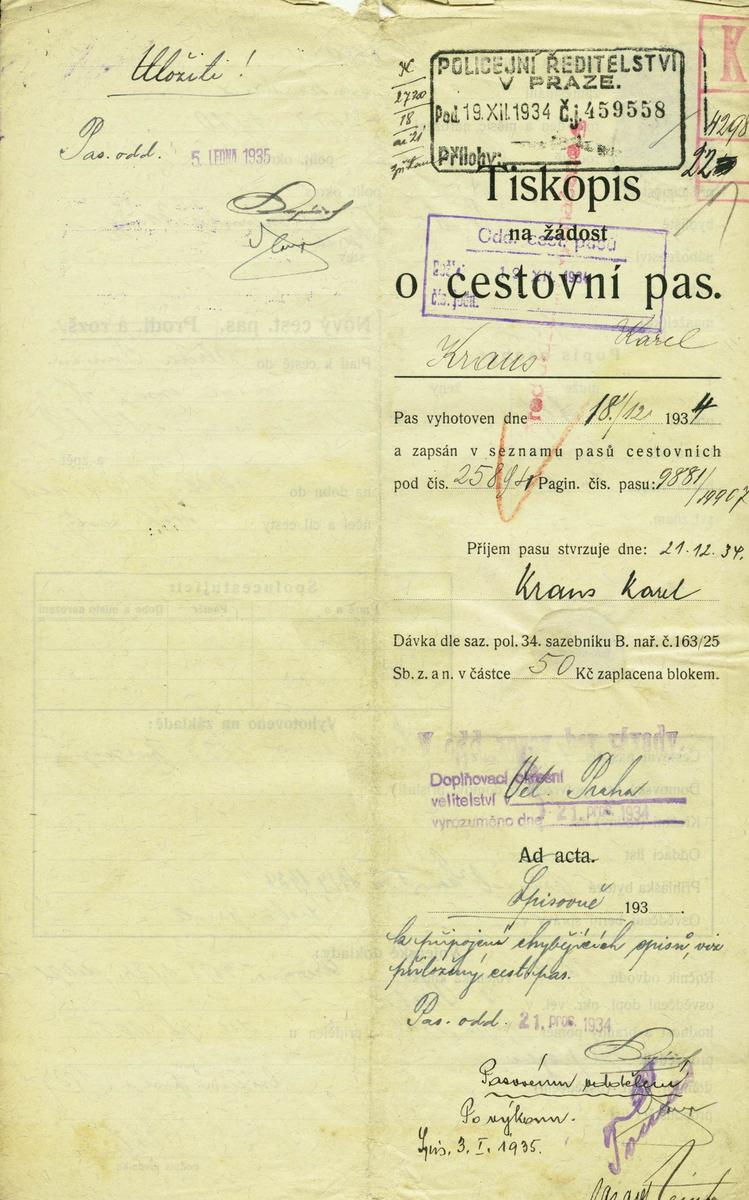 Uložiti!
Pas. odd. 5. LEDNA 1935
2720
18
POLICEJNÍ ŘEDITELSTVÍ
V PRAZE.
Pod. 19.XII.1934 Č.j. 459558
Přílohy:
K
4298
22
Tiskopis
na žádost
Odd. cest. pasů
Došlo: 19. XII. 1934
čís. jedn.
o cestovní pas.
Kraus Karel
Pas vyhotoven dne 18./12. 1934
a zapsán v seznamu pasů cestovních
pod čís. Pagin. čís. pasu: 9881/19907
Příjem pasu stvrzuje dne: 21.12.34.
Kraus Karel
Dávka dle saz. pol. 34. sazebníku B. nař. č. 163/25
Sb. z. a n. v částce 50 Kč zaplacena blokem.
Doplňovací okresní
velitelství v Vel. Praha
vyrozuměno dne 21. pros. 1934
Ad acta.
Spisovně 193
k připojení chybějících spisů, viz
přiložený cest. pas.
Pas. odd. 21. pros. 1934
Pasovému oddělení
Po výkonu.
Spis. 3. I. 1935.